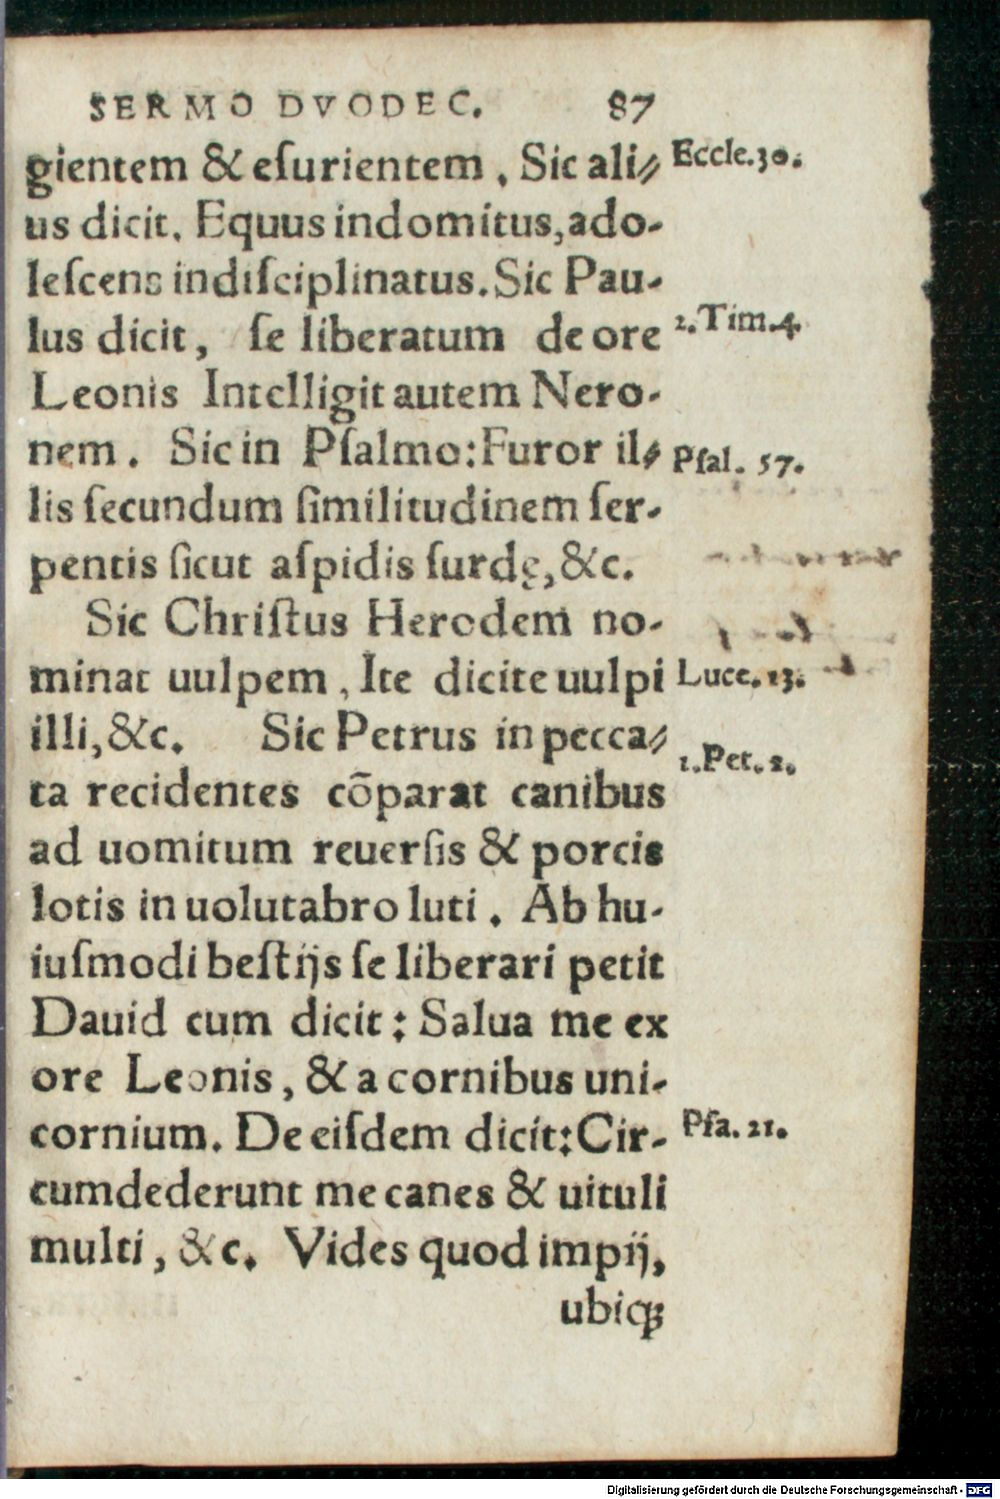 SERMO DVODEC. 87
gientem & eſurientem . Sic ali⸗ Eccle.30.
us dicit. Equus indomitus,ado-
leſcens indiſciplinatus.Sic Pau-
lus dicit, ſe liberatum de ore 2.Tim.4.
Leonis Intelligit autem Nero-
nem . Sic in Pſalmo:Furor il⸗ Pſal. 57.
lis ſecundum ſimilitudinem ſer-
pentis ſicut aſpidis ſurdę,&c.
Sic Chriſtus Herodem no-
minat uulpem , Ite dicite uulpi Luce. 13.
illi,&c. Sic Petrus in pecca⸗ 1.Pet. 2.
ta recidentes cõparat canibus
ad uomitum reuerſis & porcis
lotis in uolutabro luti . Ab hu-
iuſmodi beſtijs ſe liberari petit
Dauid cum dicit : Salua me ex
ore Leonis, & a cornibus uni-
cornium. De eiſdem dicit:Cir- Pſa. 21.
cumdederunt me canes & uituli
multi , &c. Vides quod impij,
ubiq;
Digitalisierung gefördert durch die Deutsche Forschungsgemeinschaft - DFG